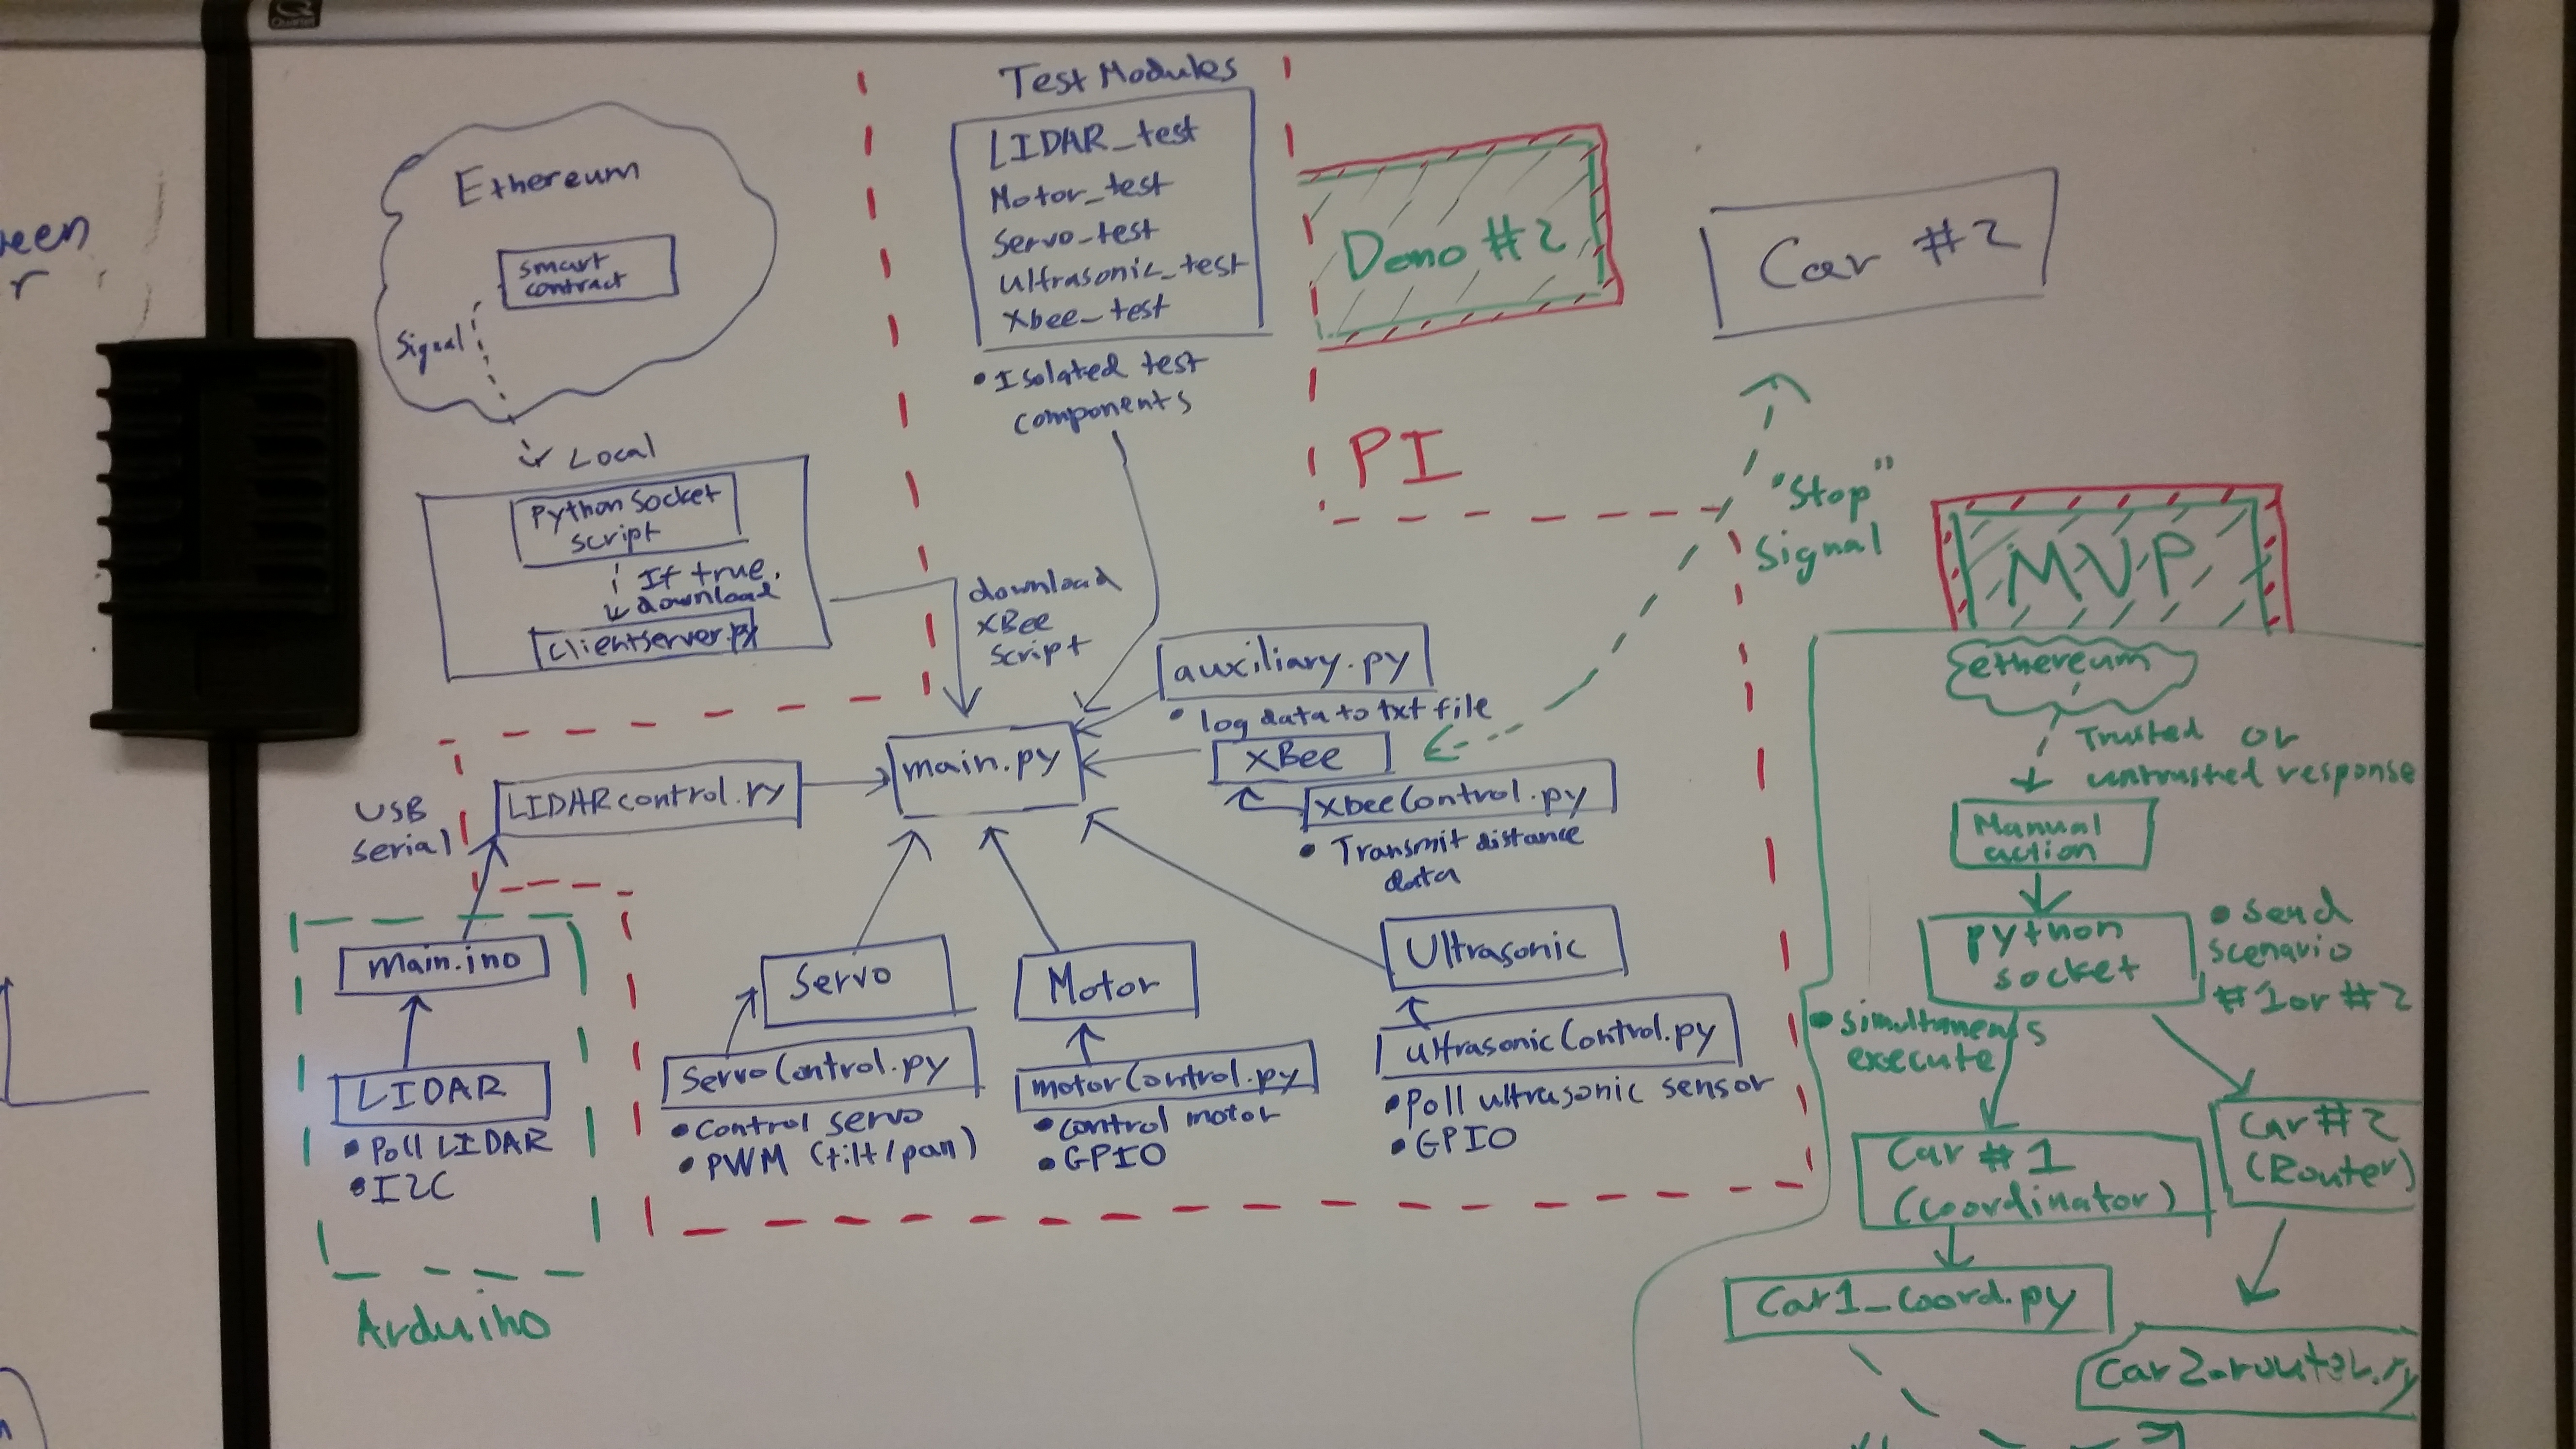 Quartet
een
r
Ethereum
smart
contract
Signal
Local
Python Socket
script
If true,
download
clientserver.py
Test Modules
LIDAR_test
Motor_test
Servo_test
Ultrasonic_test
Xbee_test
• Isolated test
components
Demo #2
Car #2
PI
"Stop"
Signal
download
XBee
Script
auxiliary.py
• log data to txt file
main.py
XBee
XbeeControl.py
• Transmit distance
data
LIDARcontrol.py
USB
Serial
main.ino
LIDAR
• Poll LIDAR
• I2C
Arduino
Servo
ServoControl.py
• Control servo
• PWM (tilt/pan)
Motor
motorControl.py
• control motor
• GPIO
Ultrasonic
ultrasonicControl.py
• Poll ultrasonic sensor
• GPIO
MVP
ethereum
Trusted or
untrusted response
Manual
action
python
socket
• Send
scenario
#1 or #2
• simultaneous
execute
Car #1
(Coordinator)
Car #2
(Router)
Car1_Coord.py
Car2_router.py